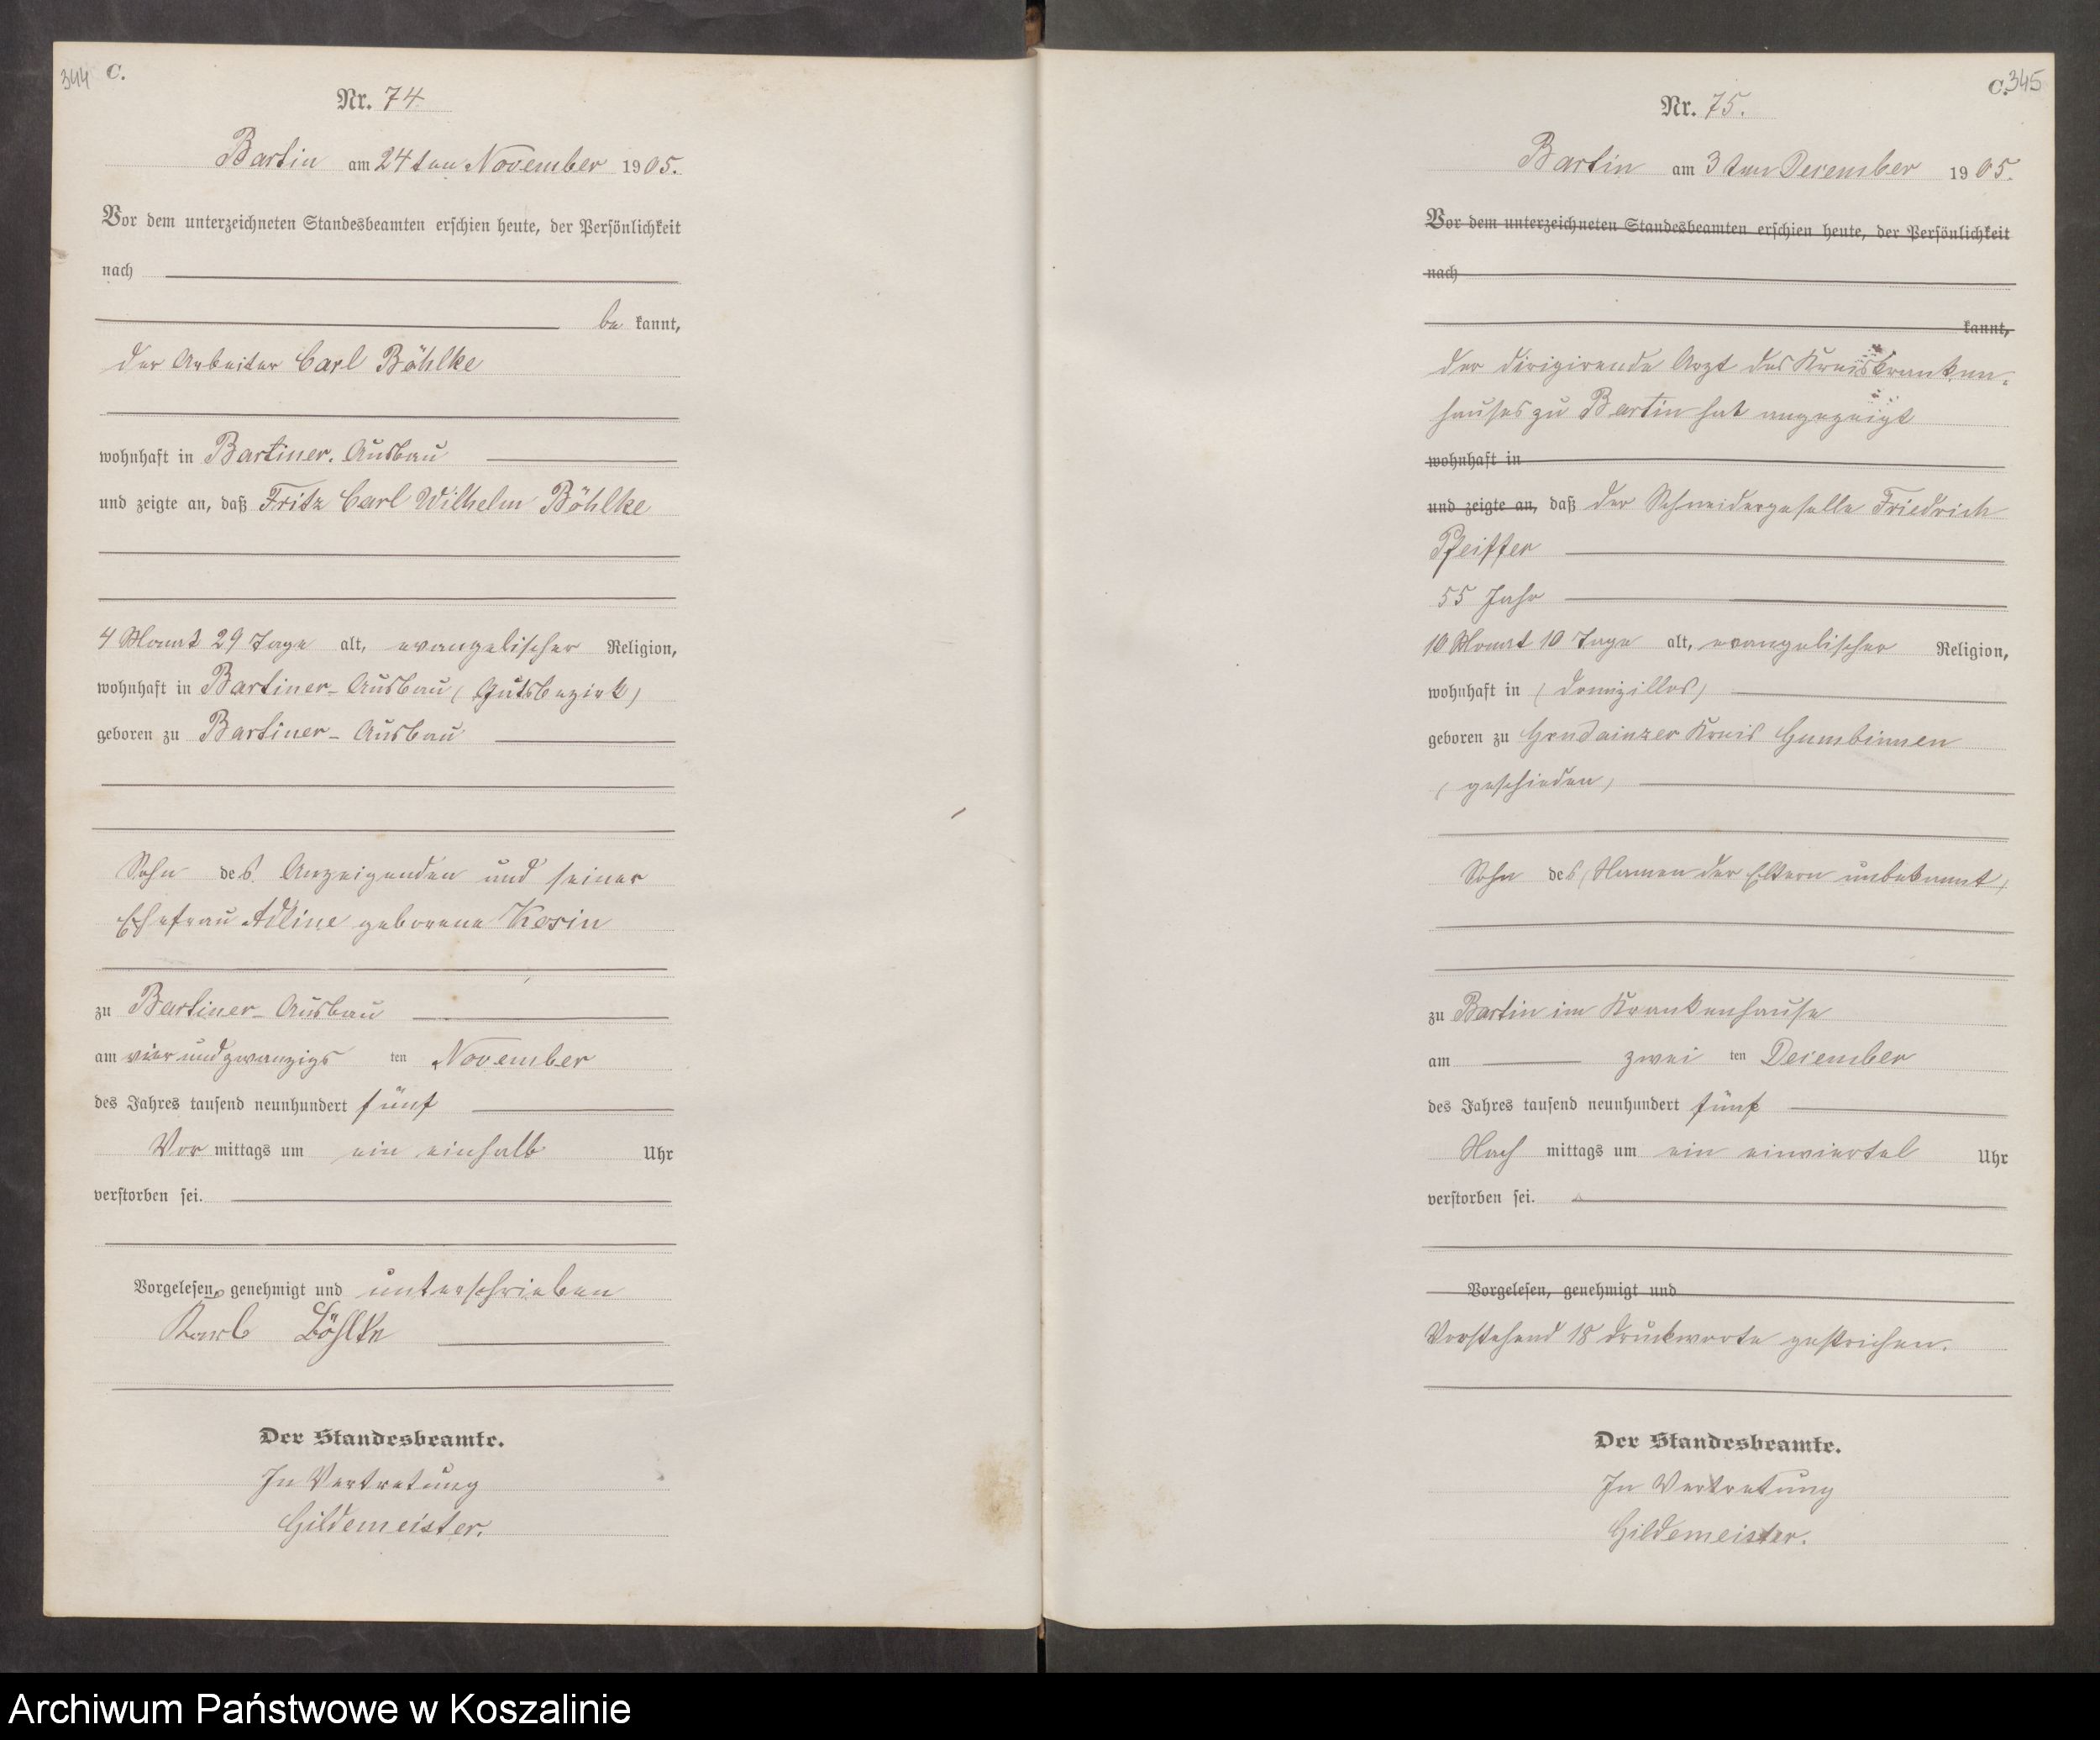 344 C.
Nr. 74
Bartin am 24ten November 1905.
Vor dem unterzeichneten Standesbeamten erschien heute, der Persönlichkeit
nach
be kannt,
der Arbeiter Carl Böhlke
wohnhaft in Bartiner-Ausbau
und zeigte an, daß Fritz Carl Wilhelm Böhlke
4 Monat 29 Tage alt, evangelischer Religion,
wohnhaft in Bartiner-Ausbau (Gutsbezirk)
geboren zu Bartiner-Ausbau
Sohn des Anzeigenden und seiner
Ehefrau Adline geborene Kosin
zu Bartiner-Ausbau
am vier und zwanzigs ten November
des Jahres tausend neunhundert fünf
Vor mittags um ein einhalb Uhr
verstorben sei.
Vorgelesen, genehmigt und unterschrieben
Karl Böhlke
Der Standesbeamte.
In Vertretung
Gildemeister.
C. 345
Nr. 75.
Bartin am 3ten Dezember 1905.
Vor dem unterzeichneten Standesbeamten erschien heute, der Persönlichkeit
nach
kannt,
der dirigirende Arzt des Kreiskranken-
hauses zu Bartin hat angezeigt
wohnhaft in
und zeigte an, daß der Schneidergeselle Friedrich
Pfeiffer
55 Jahr
10 Monat 10 Tage alt, evangelischer Religion,
wohnhaft in (domizillos)
geboren zu Kreis Gumbinnen
(geschieden)
Sohn des (Namen der Eltern unbekannt)
zu Bartin im Krankenhause
am zwei ten Dezember
des Jahres tausend neunhundert fünf
Nach mittags um ein einviertel Uhr
verstorben sei.
Vorgelesen, genehmigt und
Vorstehend 18 Druckworte gestrichen.
Der Standesbeamte.
In Vertretung
Gildemeister.
Archiwum Państwowe w Koszalinie